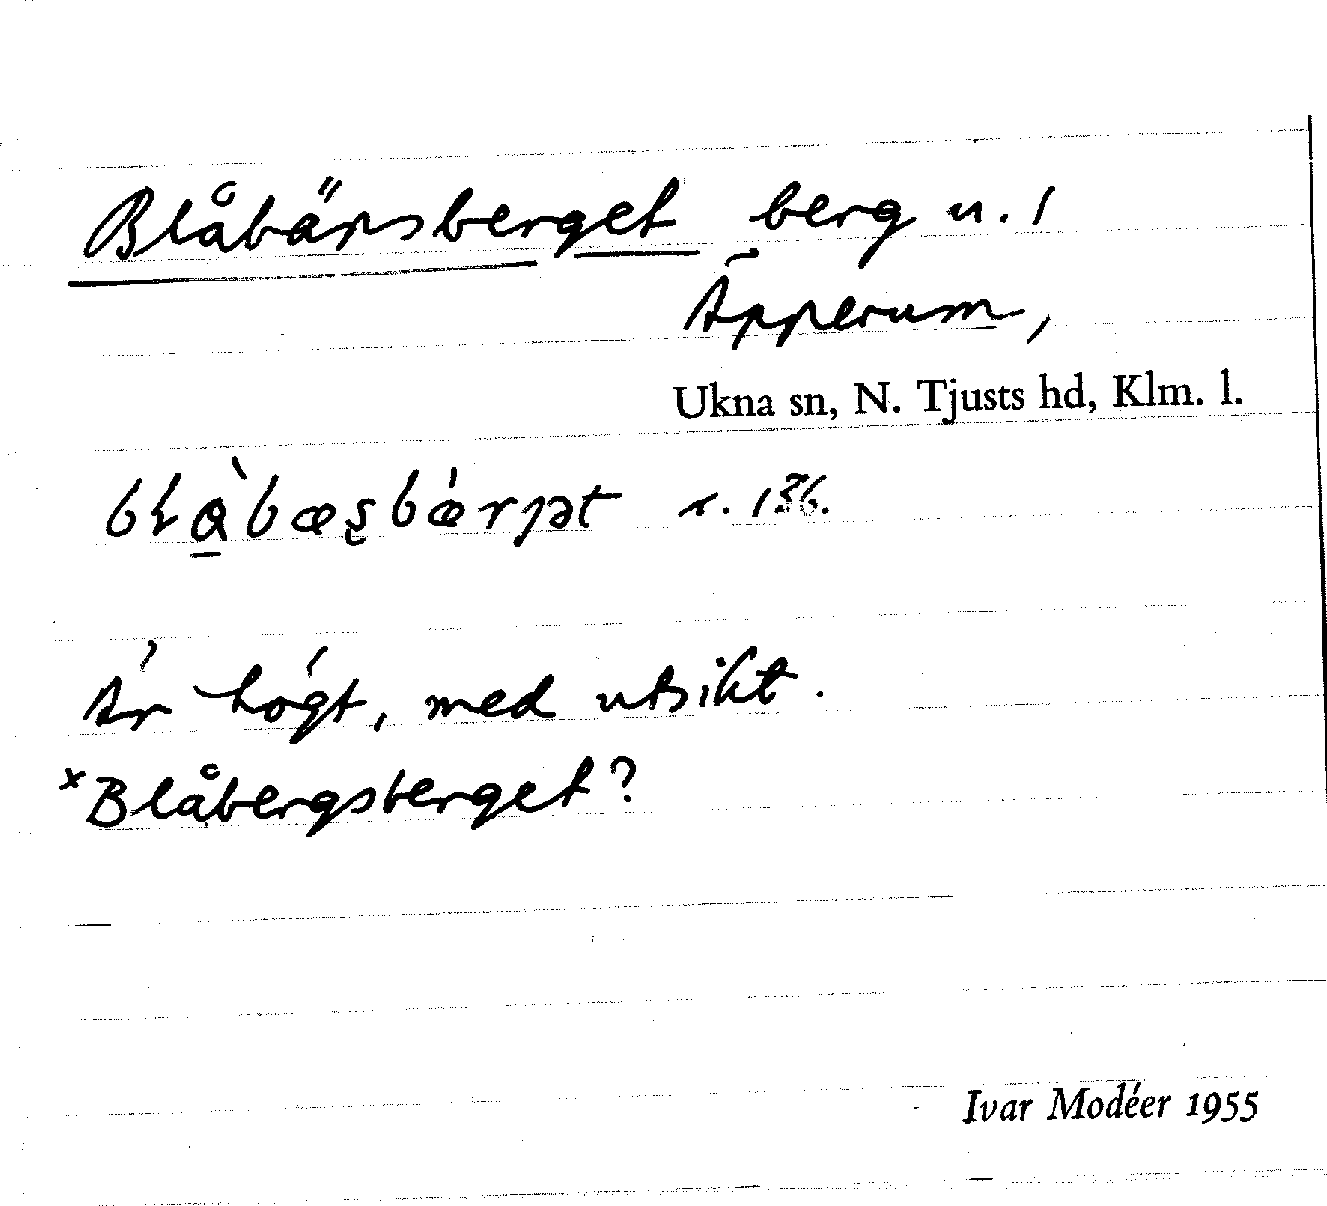 Blåbärsberget berg n. /
Äpperum,
Ukna sn, N. Tjusts hd, Klm. l.
136.
Är högt, med utsikt.
*Blåbergsberget?
Ivar Modéer 1955